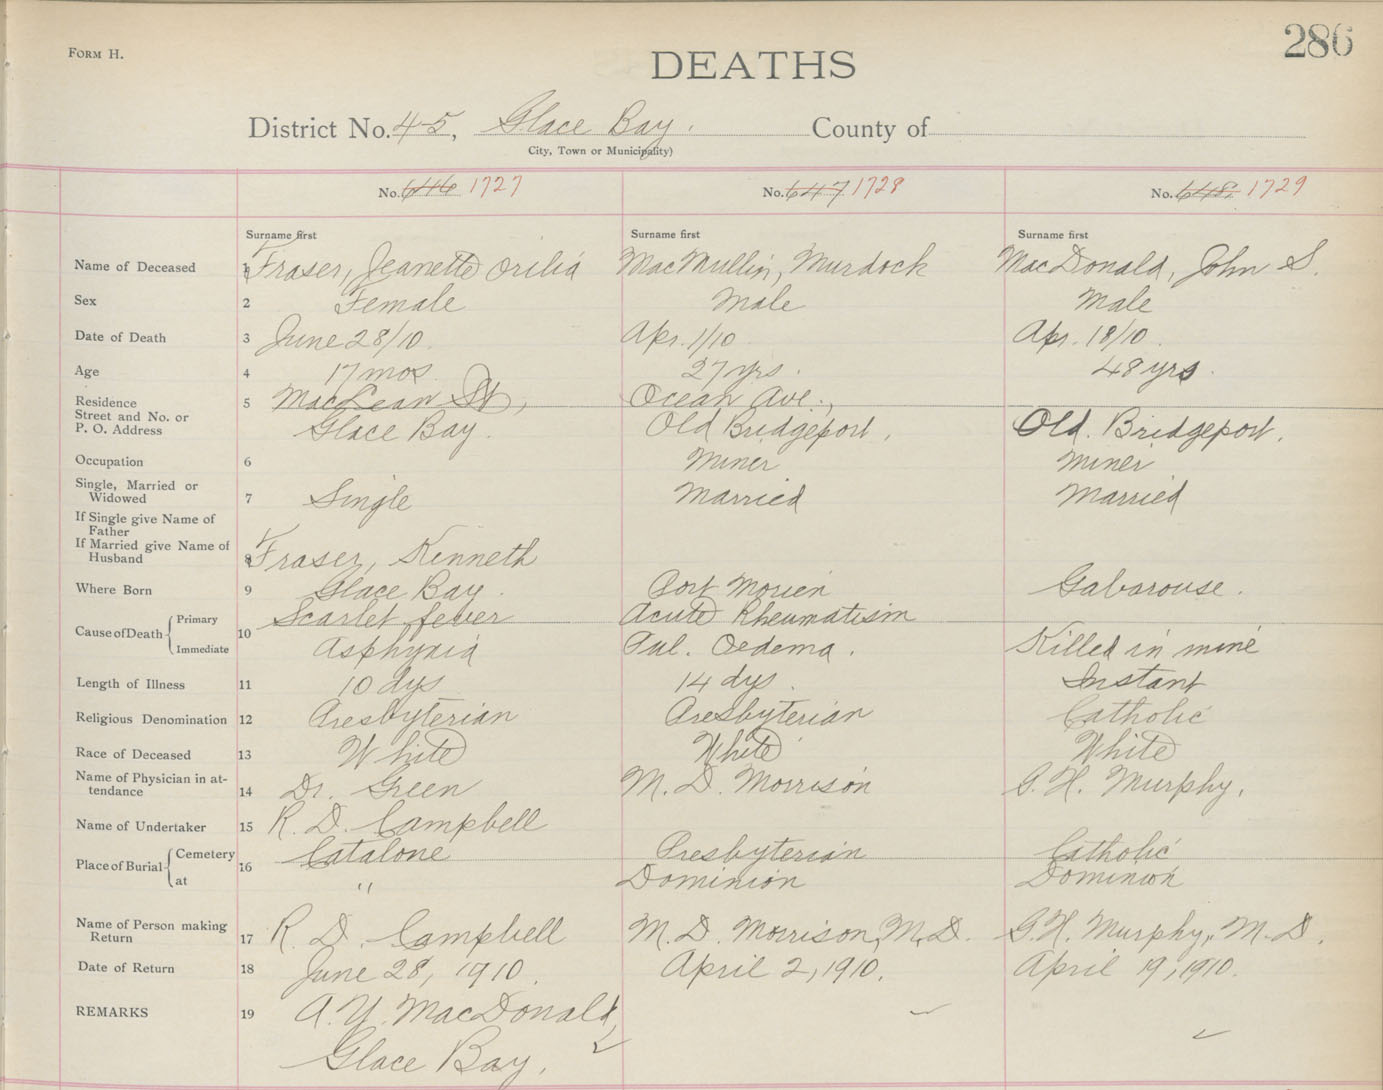 FORM H.
286
DEATHS
District No. 45, Glace Bay. County of
City, Town or Municipality)
No. 646 1727 No. 647 1728 No. 648 1729
Surname first Surname first Surname first
Name of Deceased 1 Fraser, Jeanette Orilia MacMullin, Murdock MacDonald, John S.
Sex 2 Female Male Male
Date of Death 3 June 28/10. Apr. 1/10 Apr. 18/10.
Age 4 17 mos. 27 yrs. 48 yrs.
Residence 5 MacLean St, Ocean Ave.,
Street and No. or
P. O. Address Glace Bay. Old Bridgeport. Old. Bridgeport.
Occupation 6 Miner Miner
Single, Married or
Widowed 7 Single Married Married
If Single give Name of
Father
If Married give Name of
Husband 8 Fraser, Kenneth
Where Born 9 Glace Bay. Port Morien Gabarouse.
Cause of Death Primary 10 Scarlet fever Acute Rheumatism
Immediate Asphyxia Pul. Oedema. Killed in mine
Length of Illness 11 10 dys 14 dys. Instant
Religious Denomination 12 Presbyterian Presbyterian Catholic
Race of Deceased 13 White White White
Name of Physician in at-
tendance 14 Dr. Green M. D. Morrison G. H. Murphy.
Name of Undertaker 15 R. D. Campbell
Place of Burial Cemetery 16 Catalone Presbyterian Catholic
at " Dominion Dominion
Name of Person making
Return 17 R. D. Campbell M. D. Morrison, M.D. G. H. Murphy, M. D.
Date of Return 18 June 28, 1910. April 2, 1910. April 19, 1910.
REMARKS 19 A. Y. MacDonald,
Glace Bay.